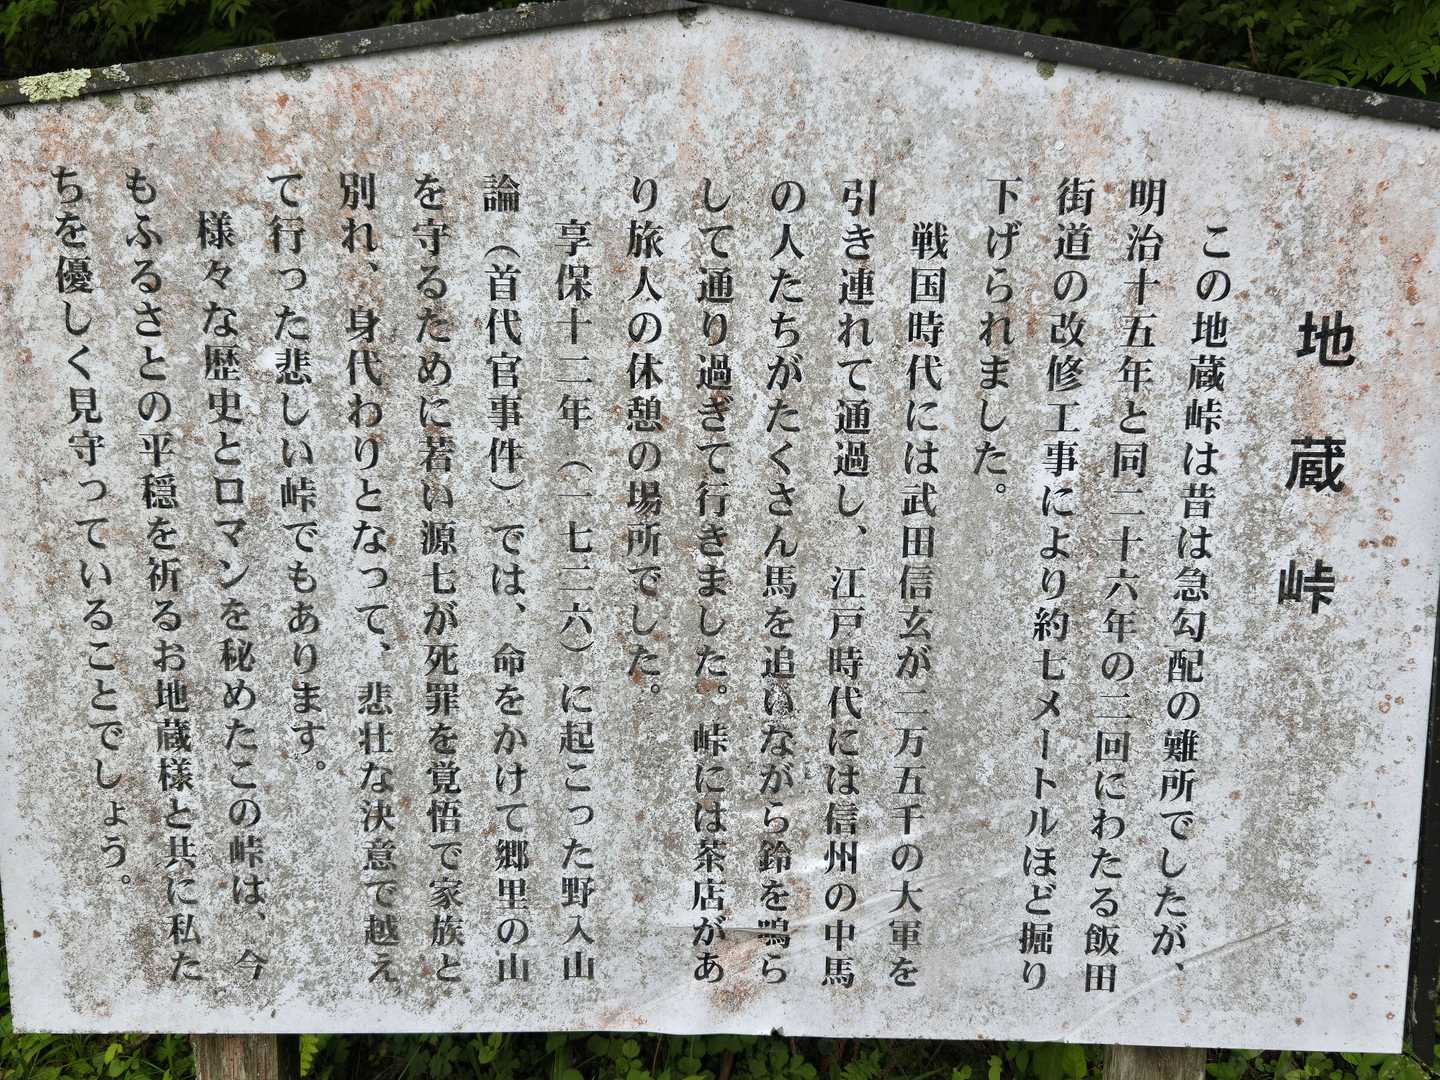 地蔵峠
この地蔵峠は昔は急勾配の難所でしたが、
明治十五年と同二十六年の二回にわたる飯田
街道の改修工事により約七メートルほど掘り
下げられました。
戦国時代には武田信玄が二万五千の大軍を
引き連れて通過し、江戸時代には信州の中馬
の人たちがたくさん馬を追いながら鈴を鳴ら
して通り過ぎて行きました。峠には茶店があ
り旅人の休憩の場所でした。
享保十二年（一七二六）に起こった野入山
論（首代官事件）では、命をかけて郷里の山
を守るために若い源七が死罪を覚悟で家族と
別れ、身代わりとなって、悲壮な決意で越え
て行った悲しい峠でもあります。
様々な歴史とロマンを秘めたこの峠は、今
もふるさとの平穏を祈るお地蔵様と共に私た
ちを優しく見守っていることでしょう。